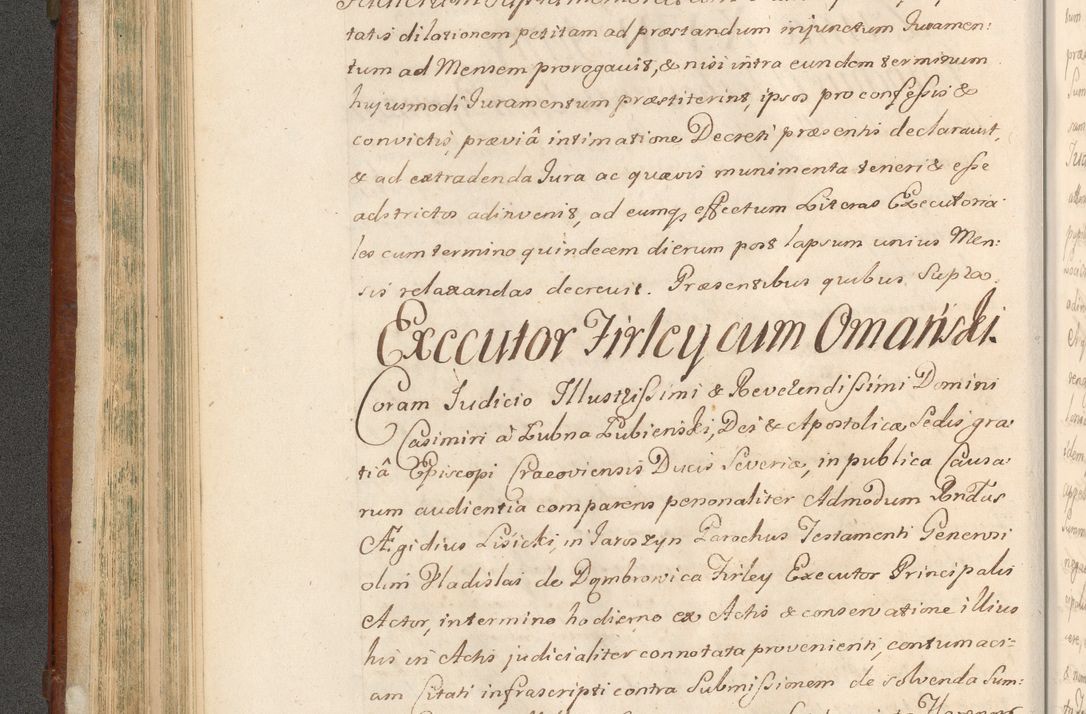 tatis dilationem petitam ad præstandum injunctum Juramen:
tum ad Mensem prorogavit, & nisi intra eundem terminum
hujusmodi Juramentum præstiterint, ipsos pro confessis &
convictis, præviâ intimatione Decreti præsentis declaravit,
& ad extradenda Jura ac quævis munimenta teneri & esse
adstrictos adinvenit, ad eumq effectum Literas Executoria
les cum termino quindecem dierum post lapsum unius Men:
sis relaxandas decrevit. Præsentibus quibus Supra.
Executor Firley cum Omański.
Coram Judicio Illustrissimi & Reverendissimi Domini
Casimiri à Lubna Lubienski, Dei & Apostolicæ Sedis gra
tiâ Episcopi Cracoviensis Ducis Severiæ, in publica Causa
rum audientia comparens personaliter Admodum Rndus
Ægidius Lisicki, in Jaroszyn Parochus Testamenti Generosi
olim Vladislai de Dąmbrowica Firley Executor Principalis
Actor, in termino hodierno ex Actis & conservatione illius
his in Actis judicialiter connotata provenienti, contumaci=
am Citati infrascripti contra Submissionem de solvenda Sum: